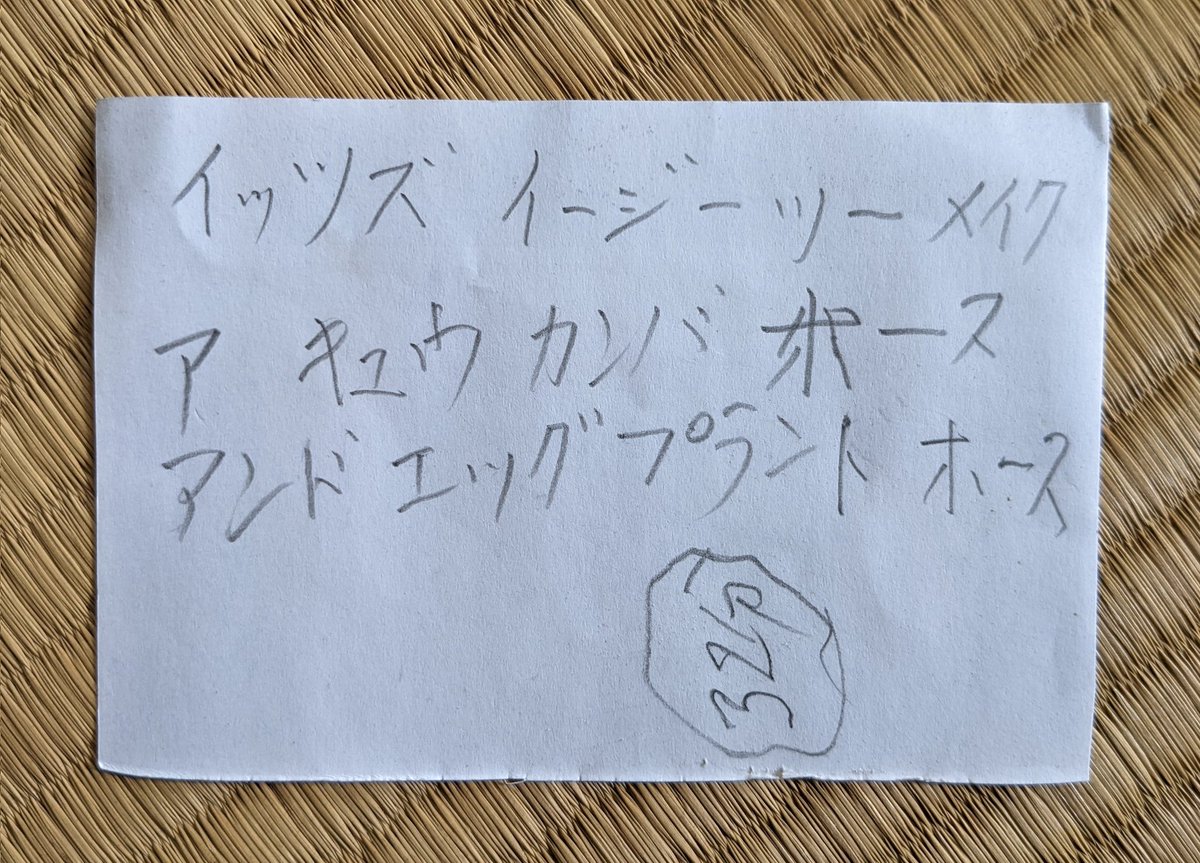 イッツズ イージーツーメイク
ア キュウカンバ ホース
アンド エッグプラント ホース